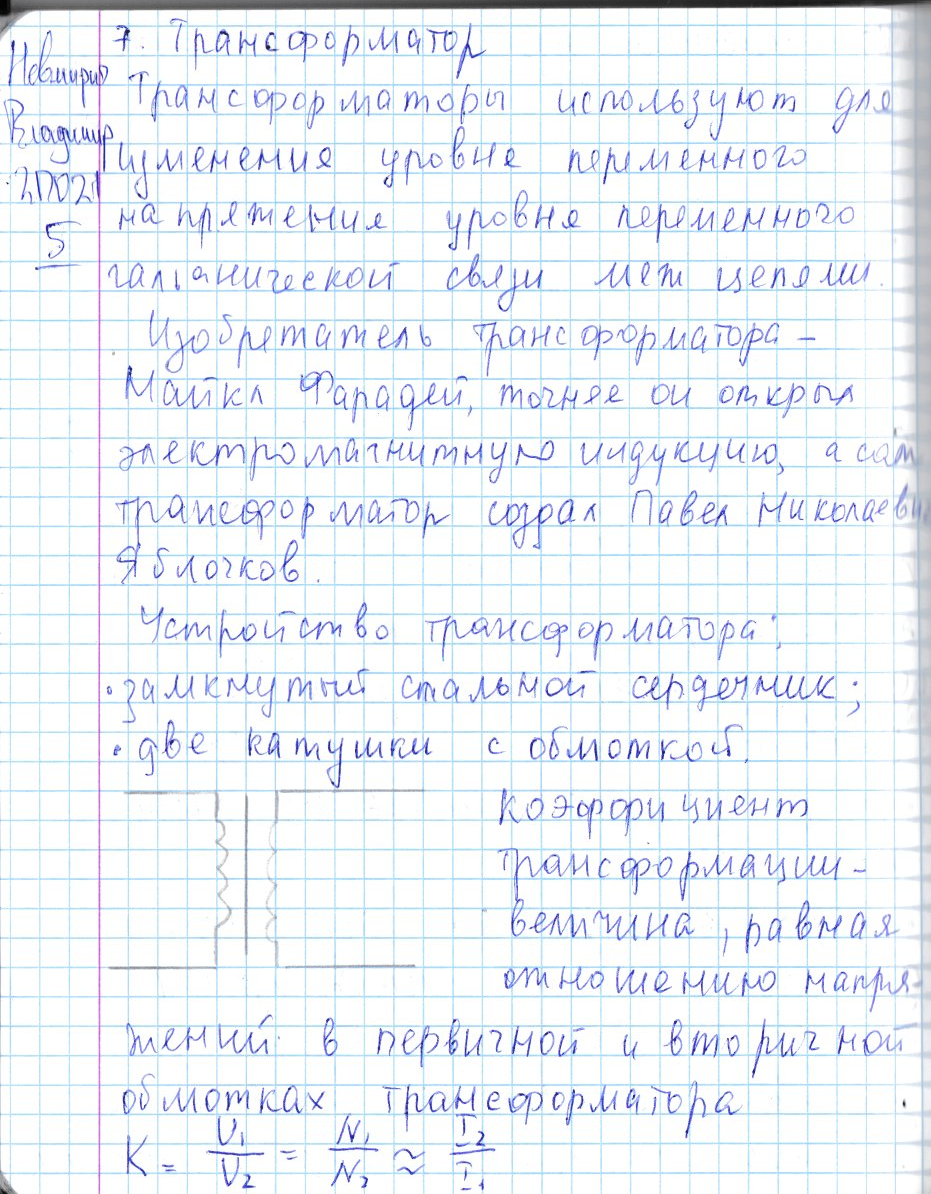 7. Трансформатор
Владимир
5
Трансформаторы используют для
изменения уровня переменного
напряжения уровня переменного
гальванической связи меж цепями.
Изобретатель трансформатора –
Майкл Фарадей, точнее он открыл
электромагнитную индукцию, а сам
трансформатор создал Павел Николаеви
Яблочков.
Устройство трансформатора:
• замкнутый стальной сердечник;
• две катушки с обмоткой.
коэффициент
трансформации –
величина, равная
отношению напря-
жений в первичной и вторичной
обмотках трансформатора
K = U₁/U₂ = N₁/N₂ ≈ I₂/I₁